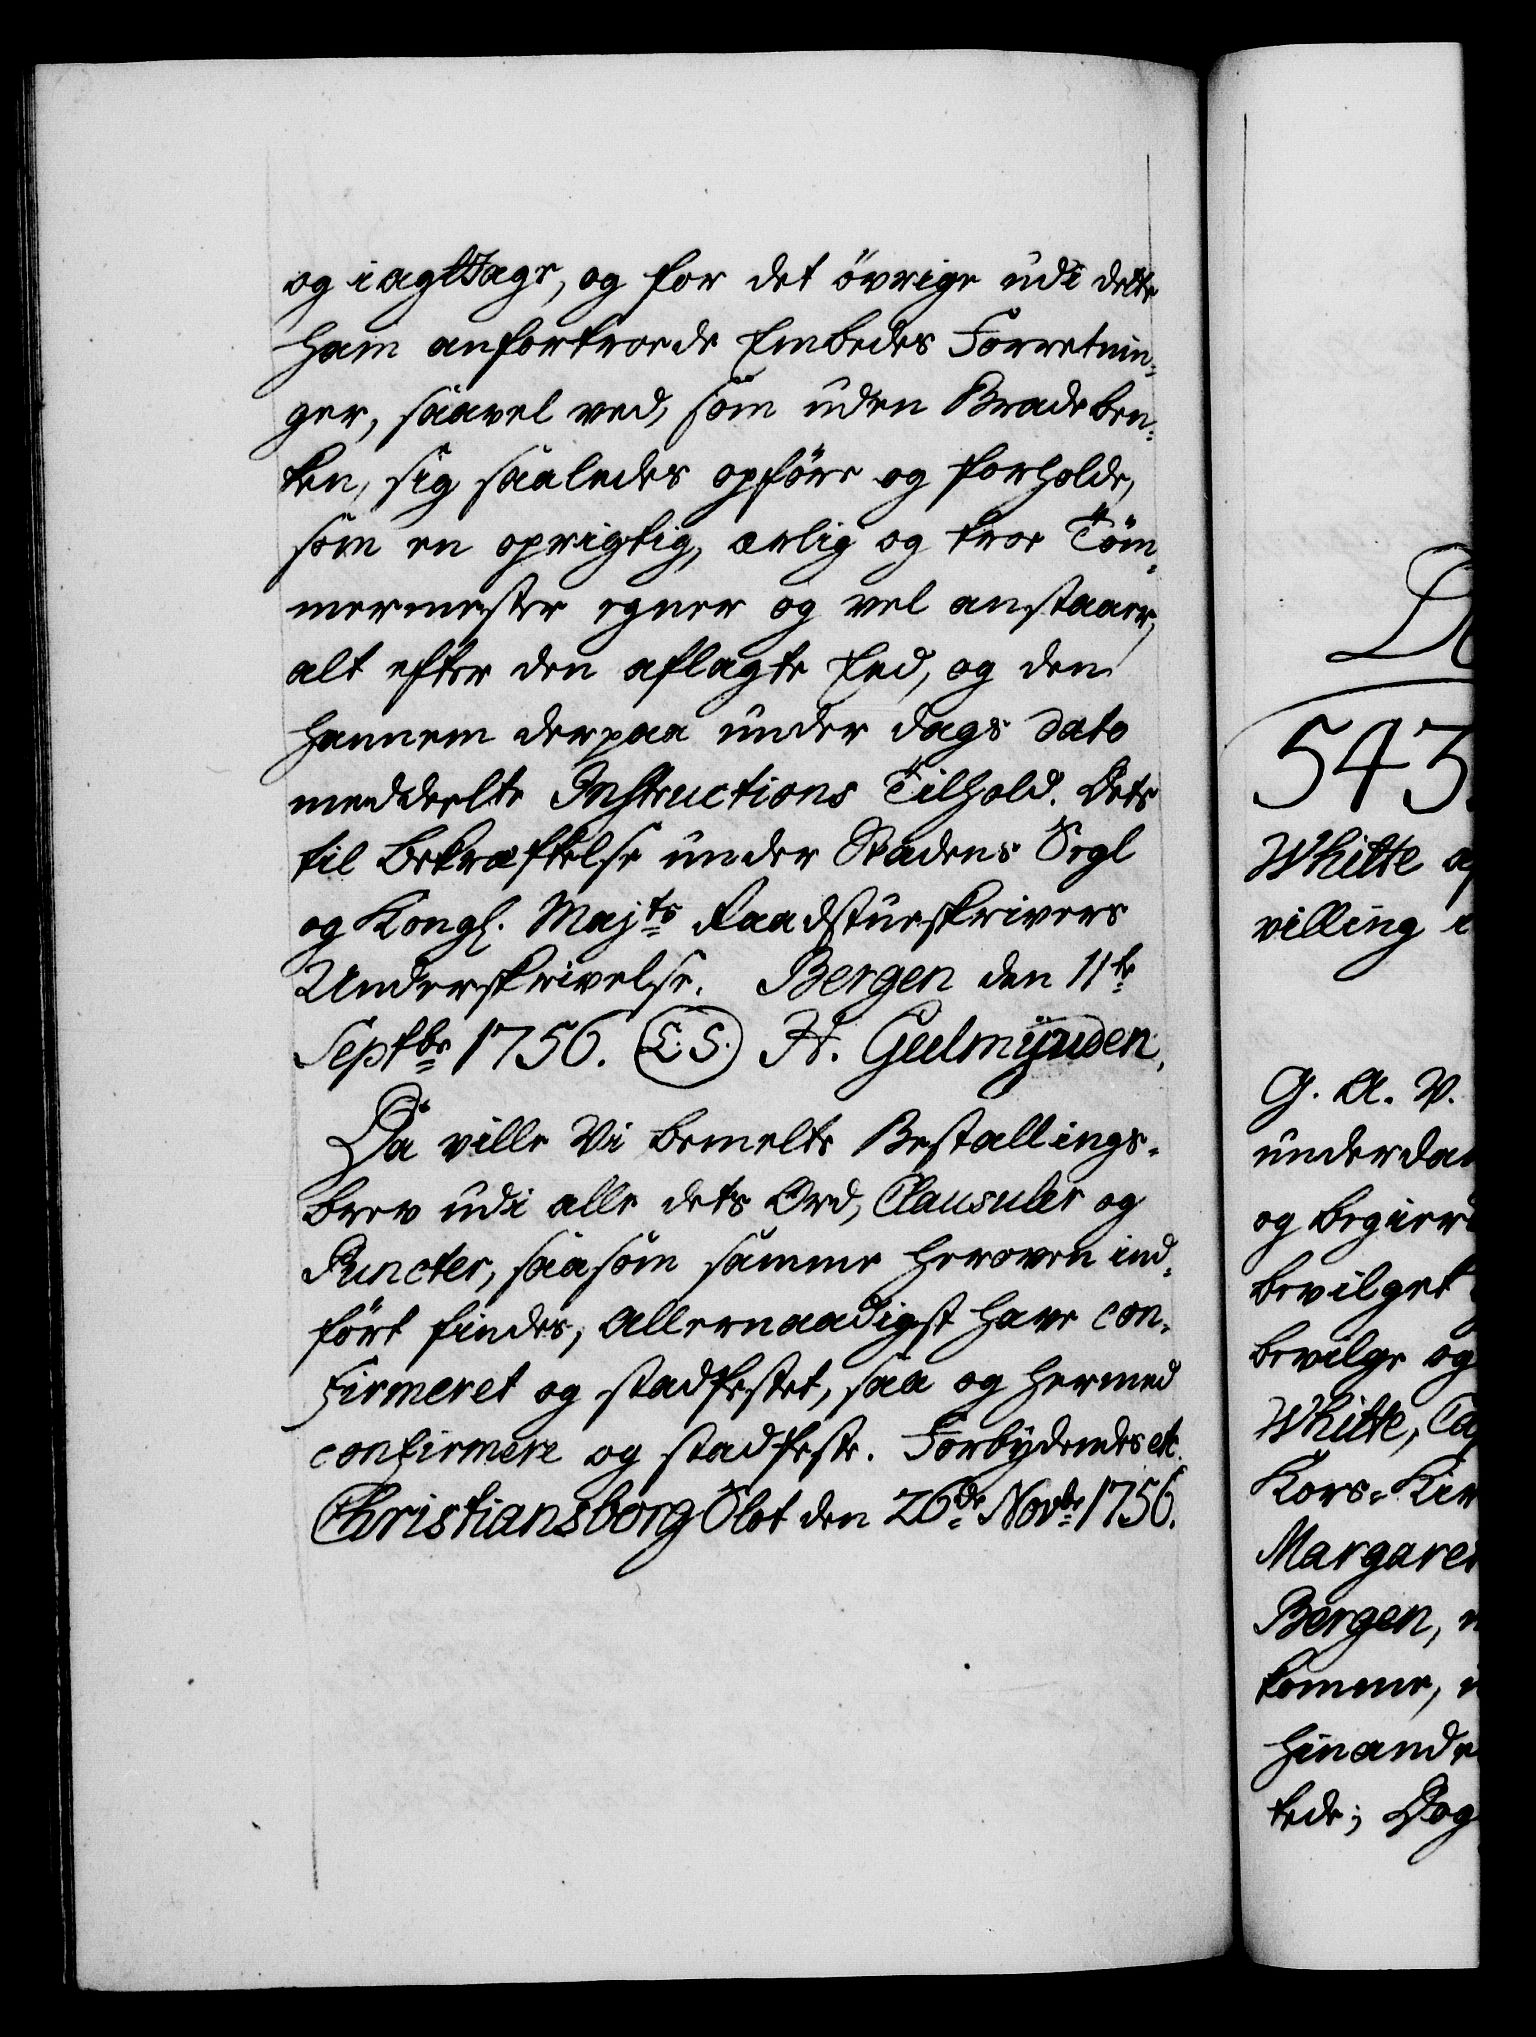 og iagttage, og for det övrige udi dette
ham anfortroede Embedes Forretnin-
ger, saavel ved, som uden Bradeben-
ken, sig saaledes opföre og forholde,
som en oprigtig, ærlig og troe Töm-
mermester egner og vel anstaaer,
alt efter den aflagte Eed, og den
hannem derpaa under dags dato
meddeelte Instructions Tilhold. Dets
til Bekræftelse under Stadens Segl
og Kongl. Majts Raadstueskrivers
Underskrivelse. Bergen den 11te
Septbr 1756. (L.S.) H. Geelmÿuden.
Da ville Vi bemelte Bestallings-
brev udi alle dets Ord, Clausuler og
Puncter, saasom samme heroven ind-
fört findes, allernaadigst have con-
firmeret og stadfestet, saa og hermed
confirmere og stadfeste. Forbydendes etc.
Christiansborg Slot den 26de Novbr 1756.
543.
Whitte
villing
G. A. V.
og begiere
bevilget
bevilge og
Whitte,
Kors-Kir
Margare
Bergen,
komme,
hinande
tede; Dog